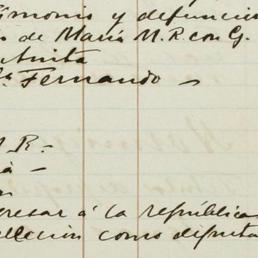 timonio y defunció
o de María M. R. con G.
Antuita
Fernando
M. R. -
esar á la república
elección como diputa